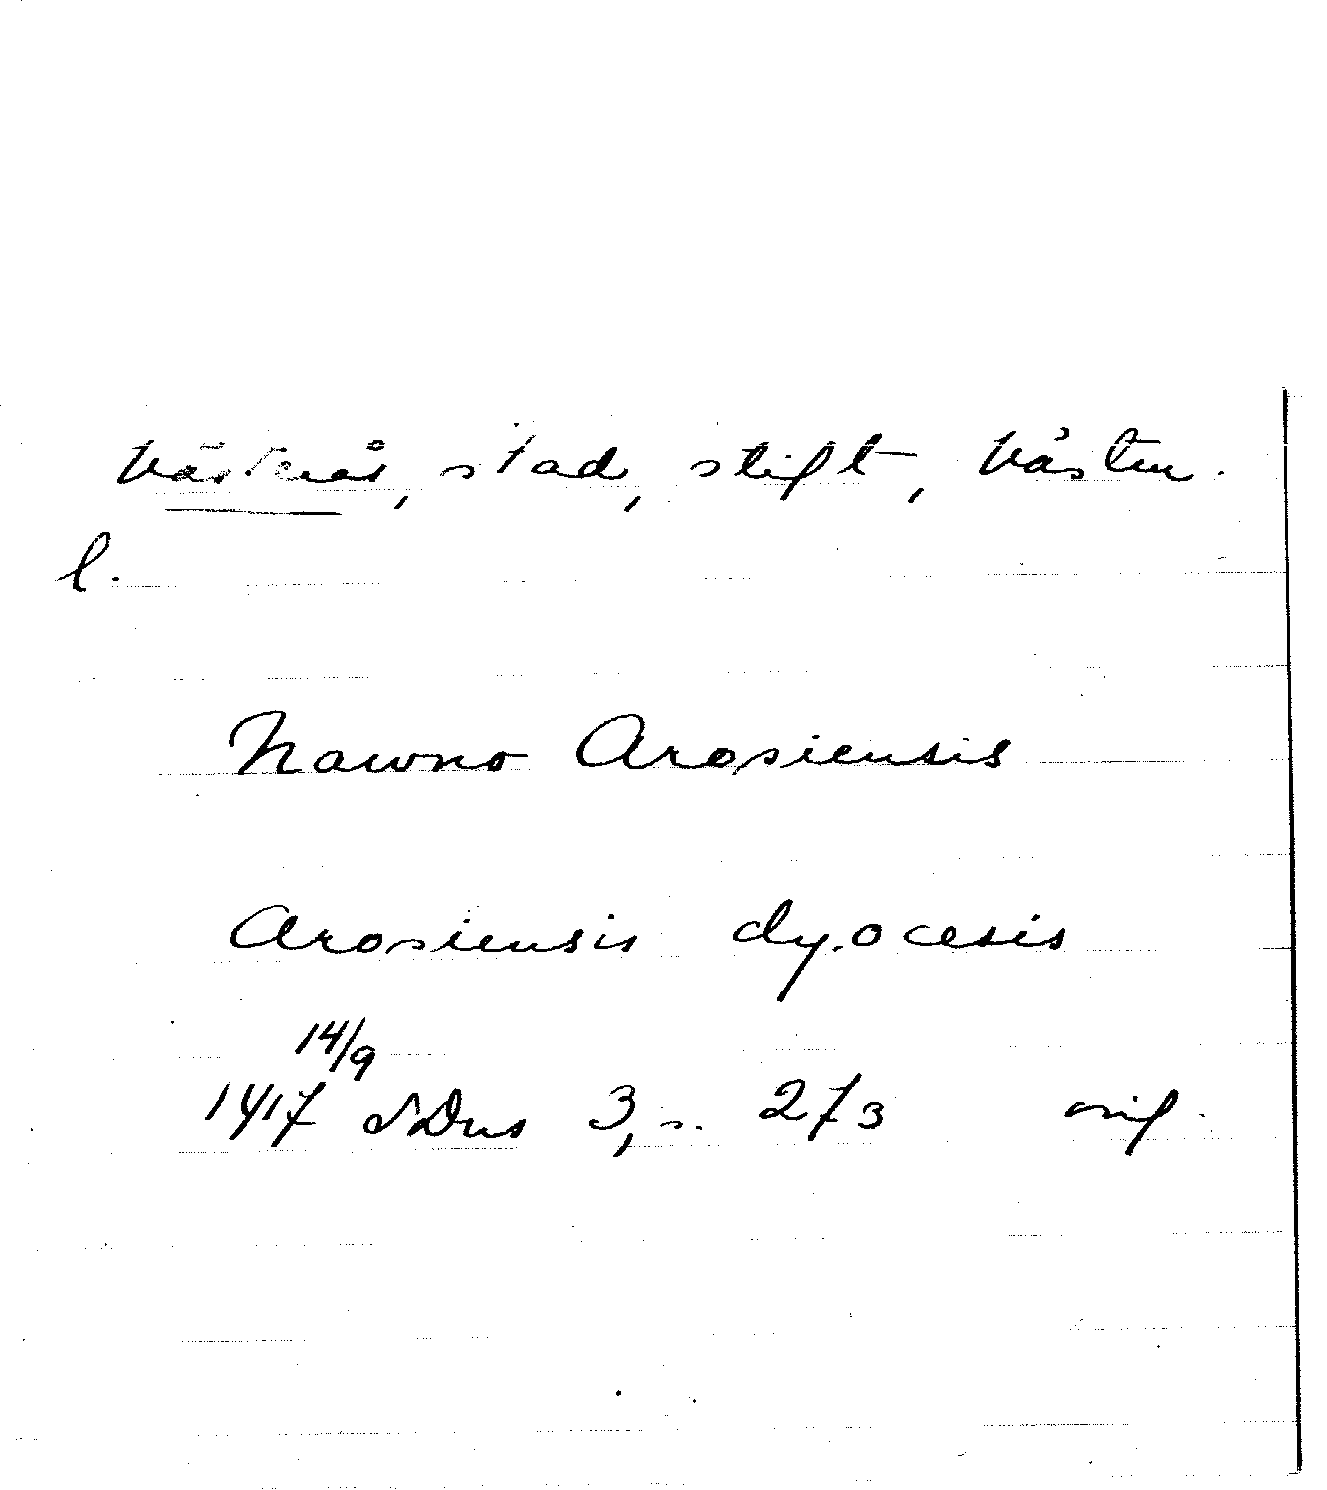 Västerås, stad, stift, Västm.
l.
Nawno Arosiensis
Arosiensis dyocesis
14/9
1417 SDns 3, s. 273 orig.